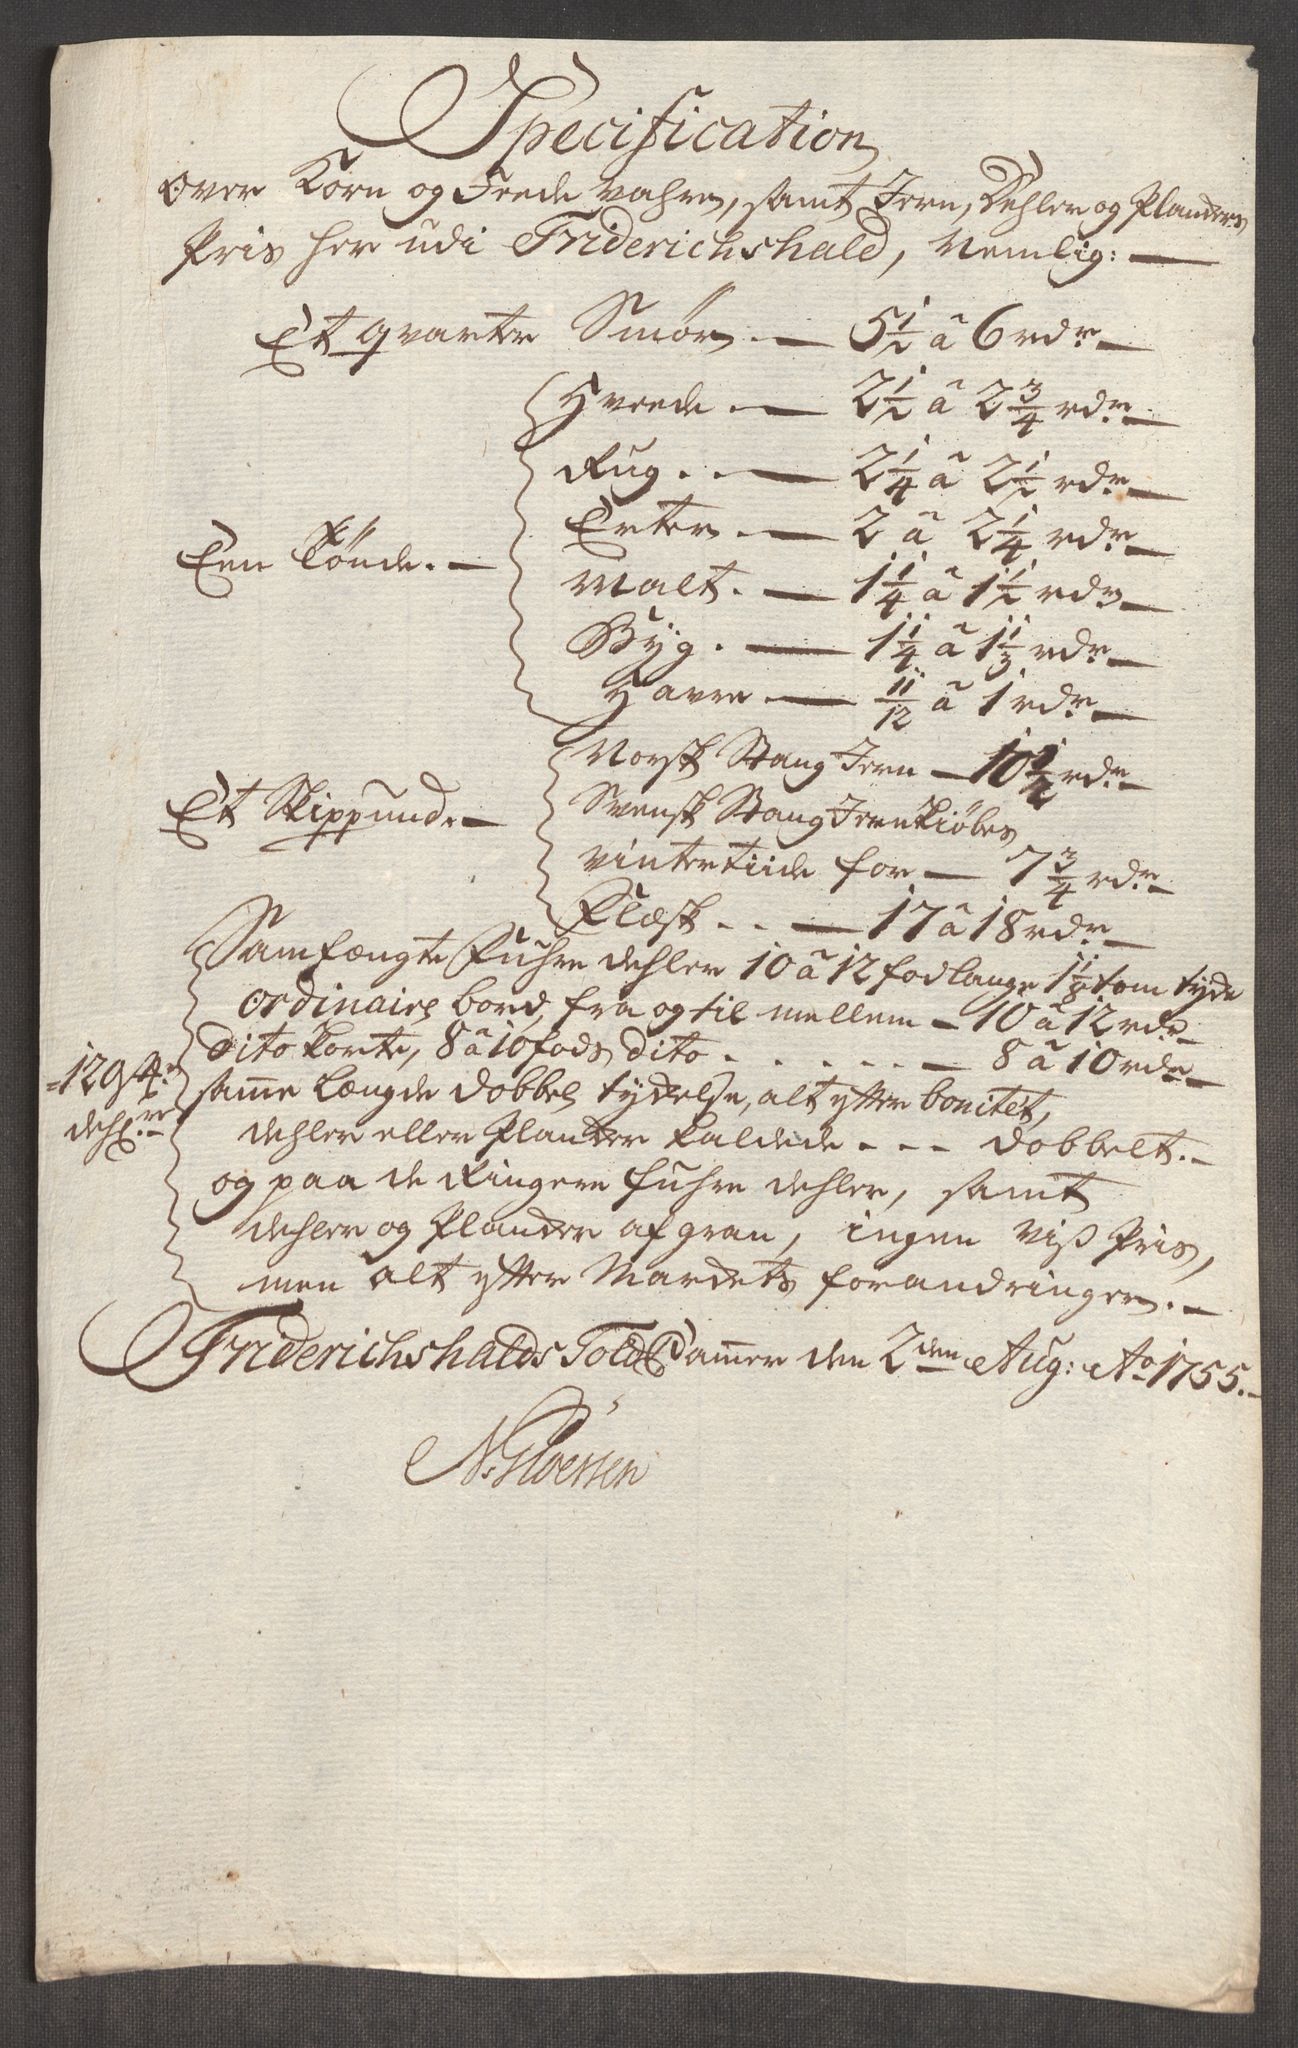 Specification
Over Korn og Feede vahre, samt Jern, Dehler og Planckers
Pris her udi Friderichshald, Nemlig: —
Et qvarter Smør. — 5½ â 6 rdr. —
Hvede. — 2½ â 2¾ rdr. —
Rug. . — 2¼ â 2½ rdr. —
Erter. — 2 â 2¼ rdr. —
Een Tönde. —
Malt. — 1¼ â 1½ rdr. —
Byg. — 1¼ â 1⅓ rdr. —
Havre — 11/12 â 1 rdr. —
Norsk Stang Jern — 10½ rdr. —
Et Skippund. —
Svensk Stang Jern kiøbes
vintertiide for — 7¾ rdr. —
Flæsk. . — 17 â 18 rdr. —
Samfængte Fuhre dehler 10 â 12 fod lange 1⅛ tom tyde
ordinaire bord, fra og til mellem — 10 â 12 rdr. —
dito korte, 8 â 10 fods dito . . . . . . — 8 â 10 rdr. —
samme Længde dobbel tydelse, alt efter bonitet,
dehler eller Plancker kaldede - - - dobbelt. —
og paa de Ringere fuhre dehler, samt
dehler og Plancker af gran, ingen viß Pris,
men alt efter Marckets forandringer. —
Friderichshalds Told Cammer den 2den Aug: Ao 1755. —